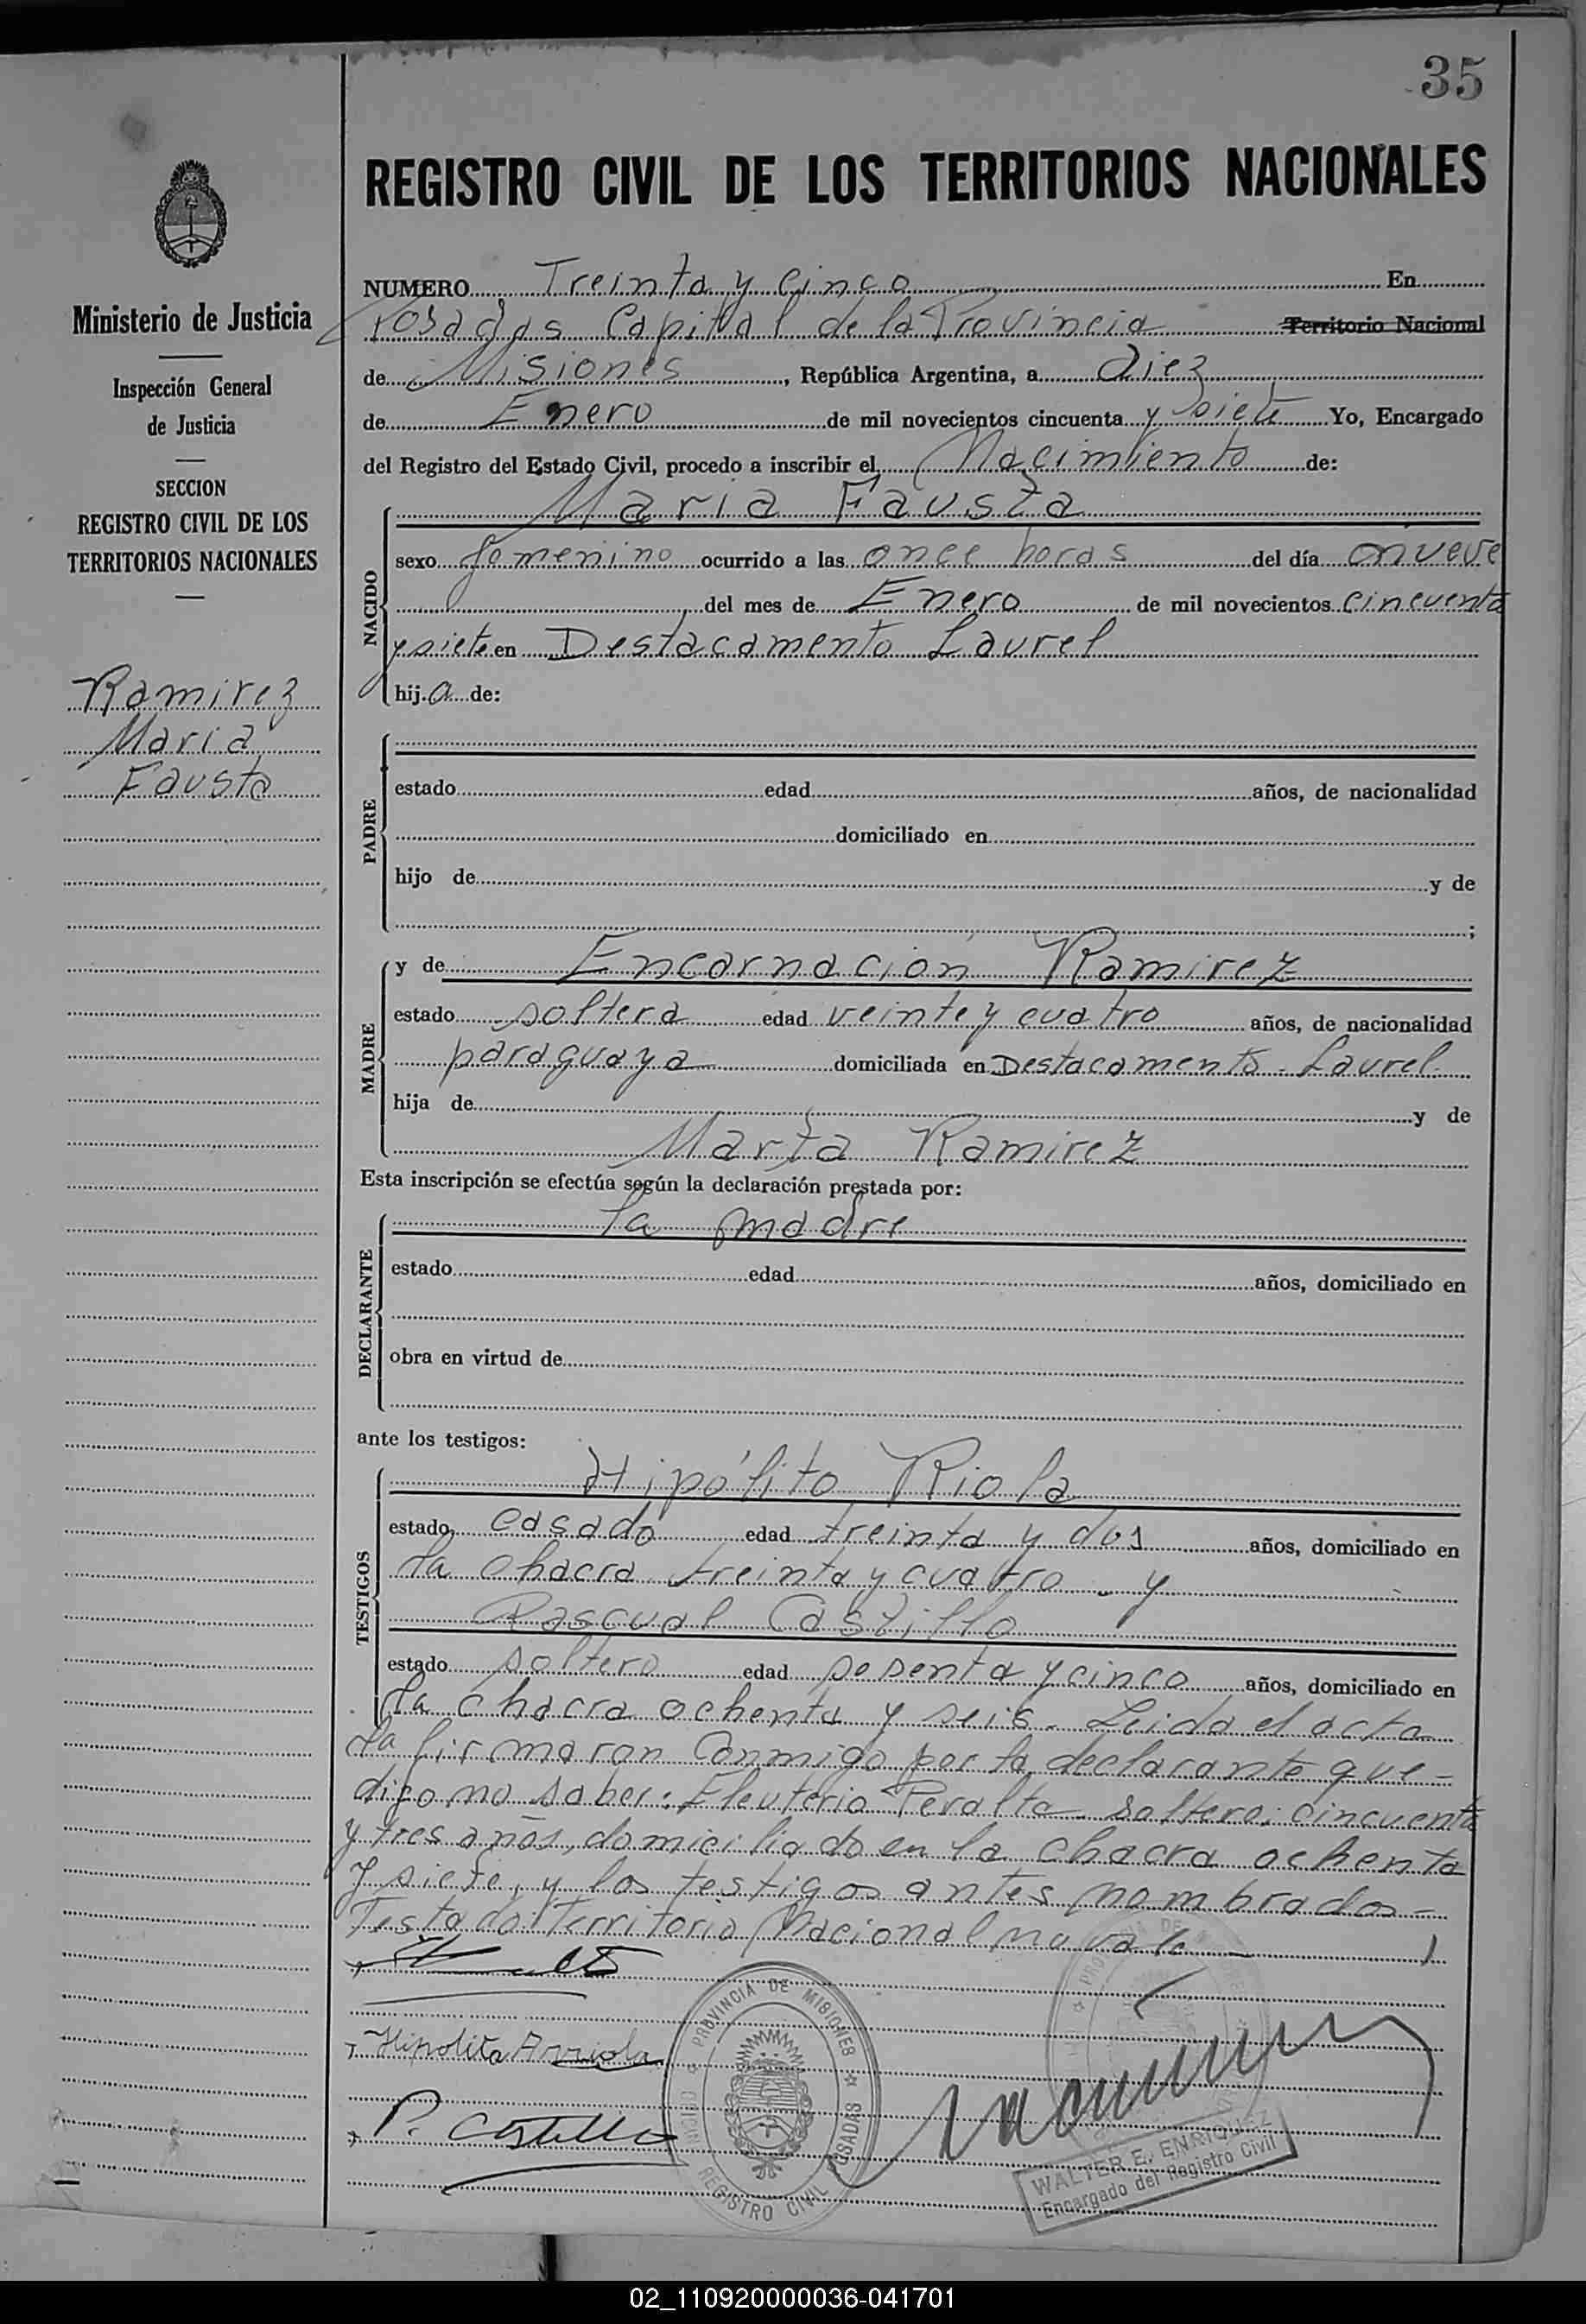 35
REGISTRO CIVIL DE LOS TERRITORIOS NACIONALES
Ministerio de Justicia
Inspección General
de Justicia
SECCION
REGISTRO CIVIL DE LOS
TERRITORIOS NACIONALES
Ramirez
Maria
Fausta
NUMERO Treinta y Cinco En
Posadas Capital de la Provincia Territorio Nacional
de Misiones, República Argentina, a diez
de Enero de mil novecientos cincuenta y siete Yo, Encargado
del Registro del Estado Civil, procedo a inscribir el Nacimiento de:
NACIDO
Maria Fausta
sexo femenino ocurrido a las once horas del día nueve
del mes de Enero de mil novecientos cincuenta
y siete en Destacamento Laurel
hij.a de:
PADRE
estado edad años, de nacionalidad
domiciliado en
hijo de y de
;
MADRE
y de Encarnación Ramirez
estado soltera edad veinte y cuatro años, de nacionalidad
paraguaya domiciliada en Destacamento Laurel
hija de y de
Marta Ramirez
Esta inscripción se efectúa según la declaración prestada por:
DECLARANTE
la madre
estado edad años, domiciliado en
obra en virtud de
ante los testigos:
TESTIGOS
Hipólito Riola
estado casado edad treinta y dos años, domiciliado en
la chacra treinta y cuatro - y
Pascual Castillo
estado soltero edad sesenta y cinco años, domiciliado en
la chacra ochenta y seis. Leida el acta
la firmaron conmigo por la declarante que -
dijo no saber: Eleuterio Peralta soltero, cincuenta
y tres años, domiciliado en la chacra ochenta
y siete, y los testigos antes nombrados -
Testado "Territorio Nacional" no vale -
Hipolito Arriola
P. Castillo
PROVINCIA DE MISIONES
POSADAS
REGISTRO CIVIL
WALTER E. ENRIQUEZ
Encargado del Registro Civil
02_110920000036-041701